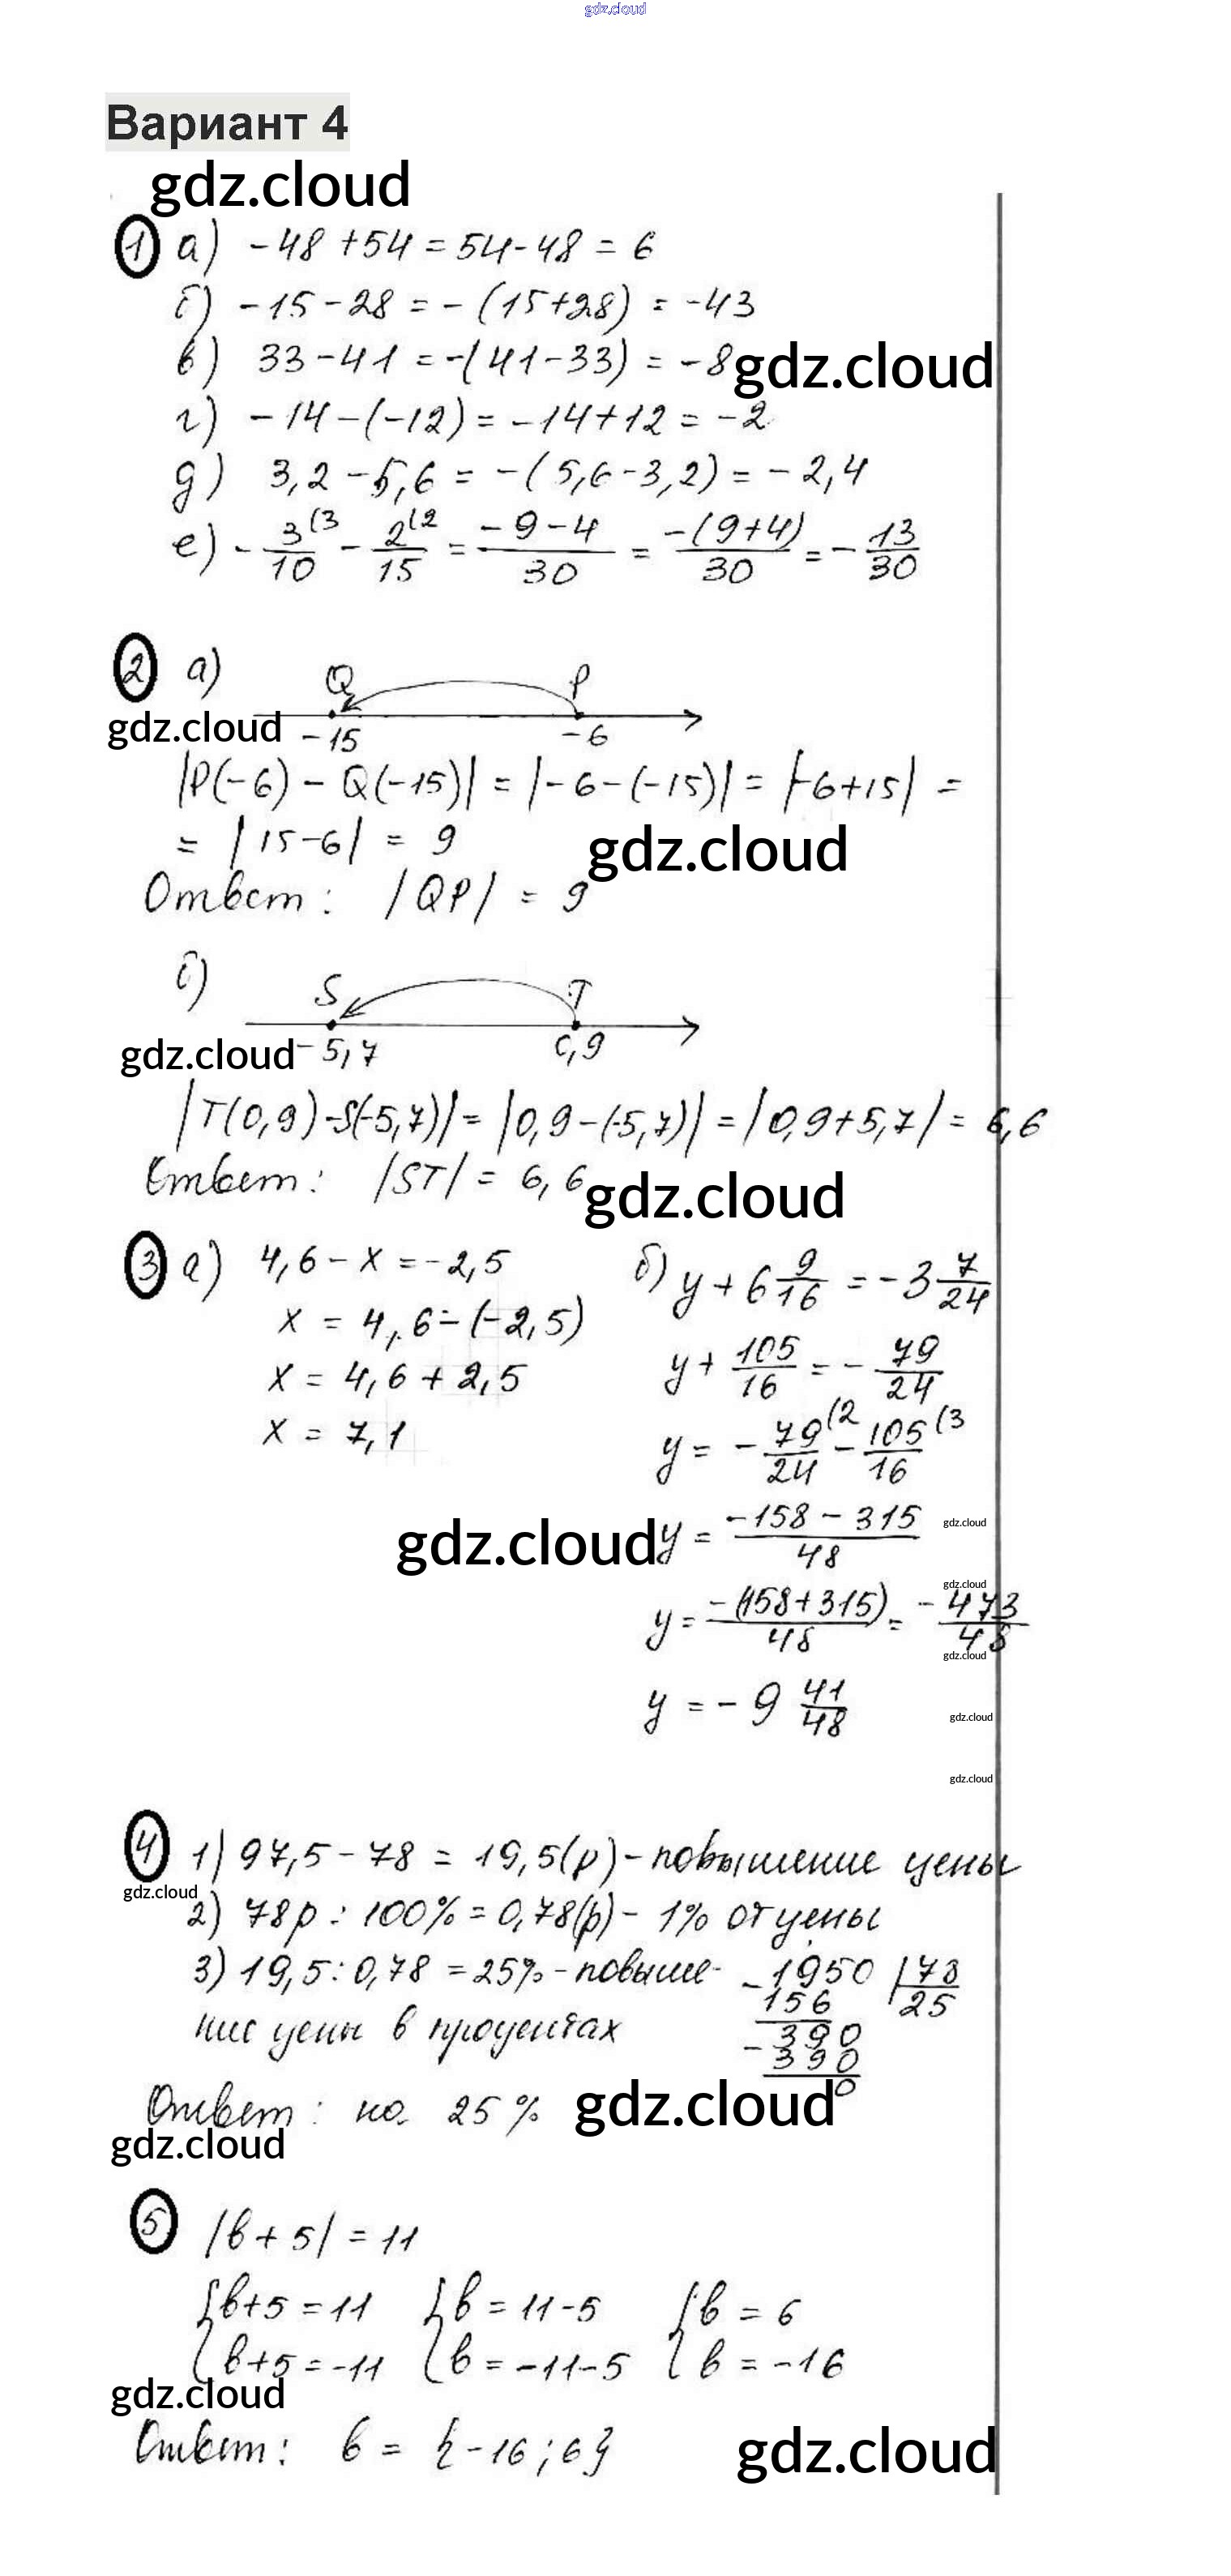 gdz.cloud
Вариант 4
gdz.cloud
1 а) -48+54=54-48=6
б) -15-28=-(15+28)=-43
в) 33-41=-(41-33)=-8
gdz.cloud
г) -14-(-12)=-14+12=-2
д) 3,2-5,6=-(5,6-3,2)=-2,4
е) -3(3/10-2(2/15=-9-4/30=-(9+4)/30=-13/30
2 а) Q P
gdz.cloud -15 -6
|P(-6)-Q(-15)|=|-6-(-15)|=|-6+15|=
=|15-6|=9
gdz.cloud
Ответ: |QP|=9
б) S T
gdz.cloud -5,7 0,9
|T(0,9)-S(-5,7)|=|0,9-(-5,7)|=|0,9+5,7|=6,6
Ответ: |ST|=6,6
gdz.cloud
3 а) 4,6-x=-2,5
x=4,6-(-2,5)
x=4,6+2,5
x=7,1
б) y+6 9/16=-3 7/24
y+105/16=-79/24
y=-79(2/24-105(3/16
gdz.cloud
y=-158-315/48
gdz.cloud
gdz.cloud
y=-(158+315)/48=-473/48
gdz.cloud
y=-9 41/48
gdz.cloud
gdz.cloud
4 1) 97,5-78=19,5(р)-повышение цены
gdz.cloud
2) 78р:100%=0,78(р)-1% от цены
3) 19,5:0,78=25%-повыше-
ние цены в процентах
-1950|78
156 25
-390
390
0
Ответ: на 25%
gdz.cloud
gdz.cloud
5 |в+5|=11
{в+5=11 {в=11-5 {в=6
{в+5=-11 {в=-11-5 {в=-16
gdz.cloud
Ответ: в={-16;6}
gdz.cloud